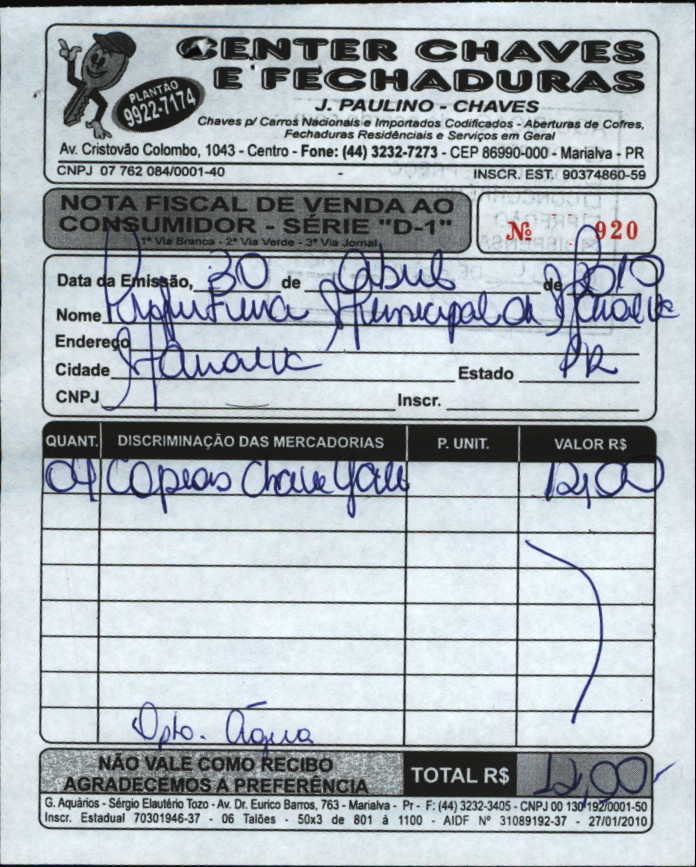 CENTER CHAVES
E FECHADURAS
PLANTÃO
9922-7174
J. PAULINO - CHAVES
Chaves p/ Carros Nacionais e Importados Codificados - Aberturas de Cofres,
Fechaduras Residênciais e Serviços em Geral
Av. Cristovão Colombo, 1043 - Centro - Fone: (44) 3232-7273 - CEP 86990-000 - Marialva - PR
CNPJ 07 762 084/0001-40 - INSCR. EST. 90374860-59
NOTA FISCAL DE VENDA AO
CONSUMIDOR - SÉRIE "D-1"
1ª Via Branca - 2ª Via Verde - 3ª Via Jornal
Nº 920
Data da Emissão, 30 de Abril de 2010
Nome Prefeitura Municipal de Marialva
Endereço
Cidade Marialva Estado PR
CNPJ Inscr.
QUANT. DISCRIMINAÇÃO DAS MERCADORIAS P. UNIT. VALOR R$
04 Copias Chave Yale 12,00
Dpto. Água
NÃO VALE COMO RECIBO
AGRADECEMOS A PREFERÊNCIA
TOTAL R$ 12,00
G. Aquários - Sérgio Elautério Tozo - Av. Dr. Eurico Barros, 763 - Marialva - Pr - F: (44) 3232-3405 - CNPJ 00 130 192/0001-50
Inscr. Estadual 70301946-37 - 06 Talões - 50x3 de 801 à 1100 - AIDF Nº 31089192-37 - 27/01/2010